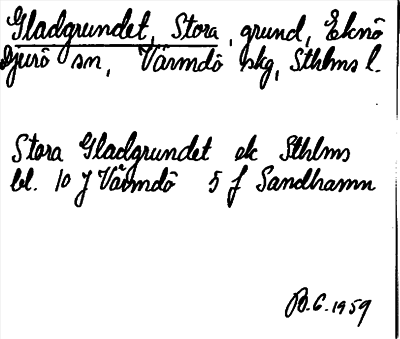 Gladgrundet, Stora, grund, Eknö
Djurö sn, Värmdö skg, Sthlms l.
Stora Gladgrundet ek Sthlms
bl. 10 J Värmdö 5 f Sandhamn
B.G. 1959